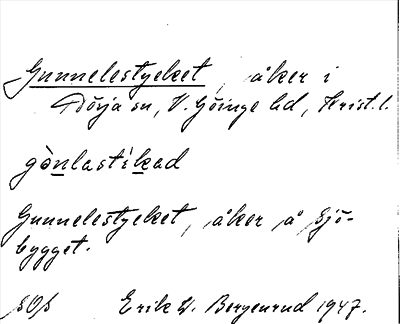 Gunnelestycket, åker i
Dörja sn, V. Göinge hd, Krist. l.
gònlastikad
Gunnelestycket, åker å Sjö-
bygget.
SOS Erik W. Bergenrud 1947.